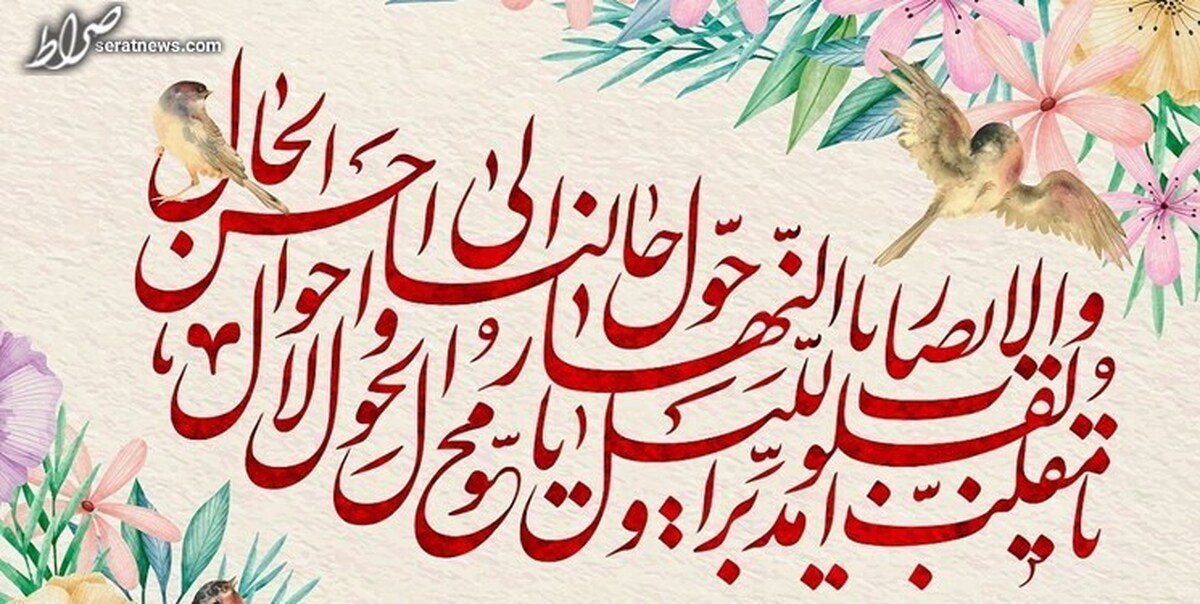 صراط
seratnews.com
یا مقلب القلوب والابصار
یا مدبر اللیل والنهار
یا محول الحول والاحوال
حول حالنا الی احسن الحال